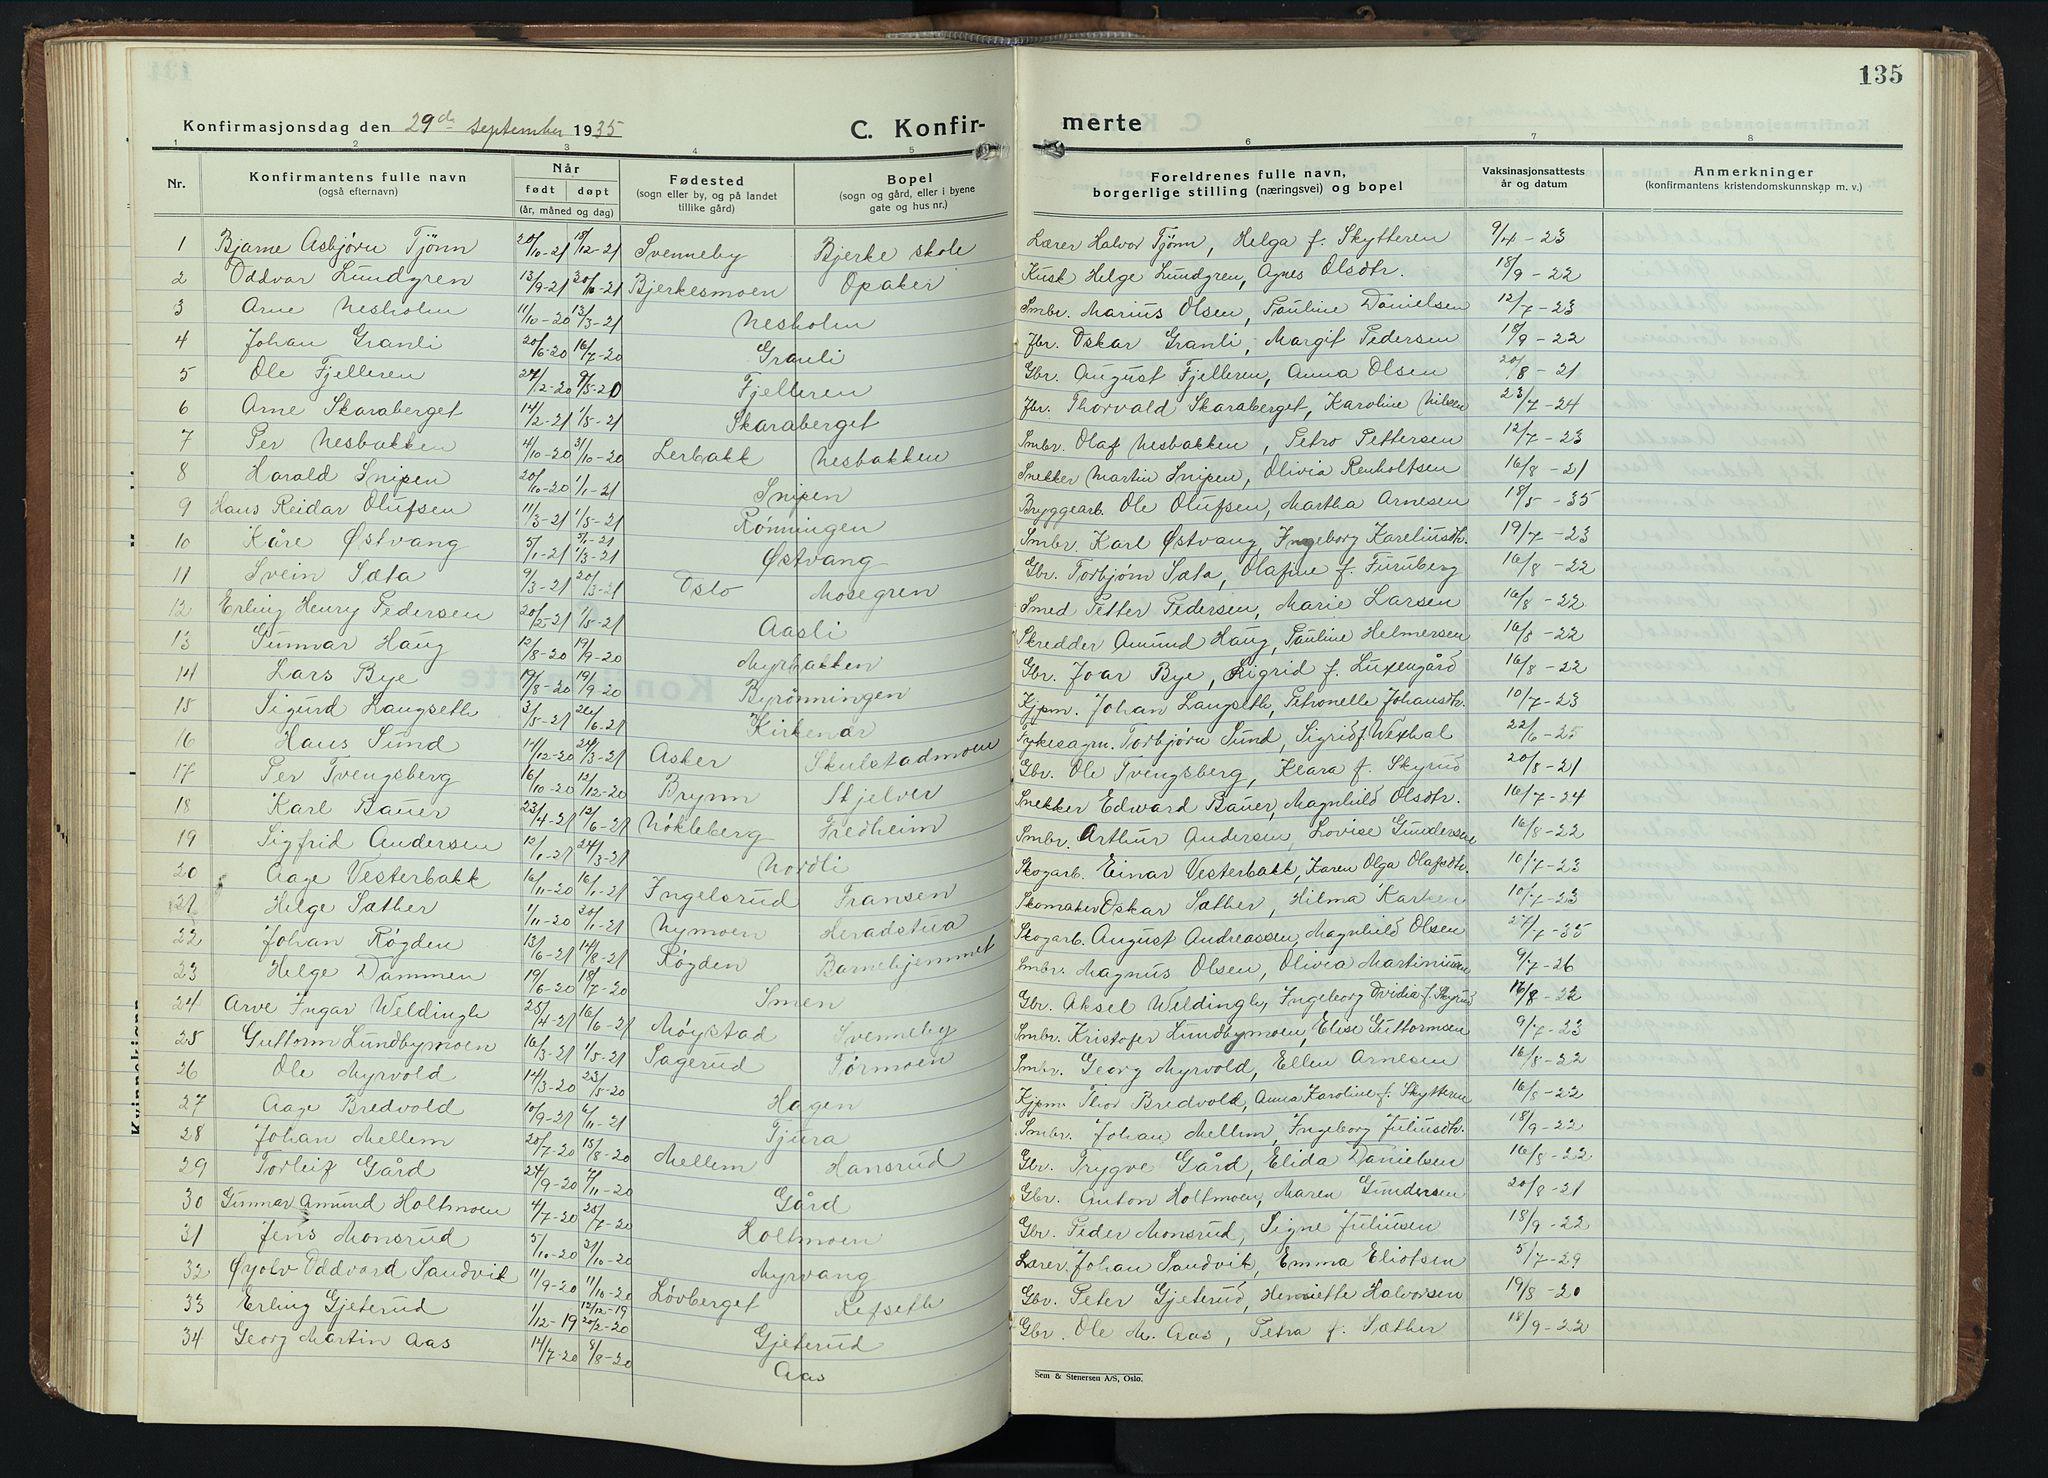 135
Konfirmasjonsdag den 29de september 1935
C. Konfir-
merte
1 2 3 4 5 6 7 8
Nr.
Konfirmantens fulle navn (også efternavn)
Når
født døpt
(år, måned og dag)
Fødested (sogn eller by, og på landet tillike gård)
Bopel (sogn og gård, eller i byene gate og hus nr.)
Foreldrenes fulle navn, borgerlige stilling (næringsvei) og bopel
Vaksinasjonsattests år og datum
Anmerkninger (konfirmantens kristendomskunnskap m. v.)
1 Bjarne Asbjørn Tjønn 20/10-21 18/12-21 Svenneby Bjerke skole Lærer Halvor Tjønn, Helga f. Skytteren 9/4-23
2 Oddvar Lundgren 13/9-21 30/10-21 Bjerkesmoen Opaker Kusk Helge Lundgren, Agnes Olsdtr. 18/9-22
3 Arne Nesholm 11/10-20 13/3-21 Nesholm Smbr. Marius Olsen, Pauline Danielsen 12/7-23
4 Johan Granli 20/6-20 16/7-20 Granli Jbr. Oskar Granli, Margit Pedersen 18/9-22
5 Ole Fjelleren 27/2-20 9/5-20 Fjelleren Gbr. August Fjelleren, Anna Olsen 20/8-21
6 Arne Skaraberget 14/2-21 1/5-21 Skaraberget Jbr. Thorvald Skaraberget, Karoline Nilsen 23/7-24
7 Per Nesbakken 4/10-20 31/10-20 Lerbakk Nesbakken Smbr. Olaf Nesbakken, Petro Pettersen 12/7-23
8 Harald Snipen 20/10-20 1/1-21 Snipen Snekker Martin Snipen, Olivia Renholtsen 16/8-21
9 Hans Reidar Olufsen 11/3-21 1/5-21 Rønningen Bryggearb. Ole Olufsen, Martha Arnesen 18/5-35
10 Kåre Østvang 5/1-21 1/3-21 Østvang Smbr. Karl Østvang, Ingeborg Kareliusdtr. 19/7-23
11 Svein Sæta 9/3-21 20/3-21 Oslo Mosegren Gbr. Torbjørn Sæta, Olafine f. Furuberg 16/8-22
12 Erling Henry Pedersen 20/2-21 1/5-21 Aasli Smed Petter Pedersen, Marie Larsen 16/8-22
13 Gunnar Haug 12/8-20 19/9-20 Myrbakken Skredder Amund Haug, Pauline Helmersen 16/8-22
14 Lars Bye 19/8-20 19/9-20 Byrønningen Gbr. Joar Bye, Sigrid f. Luxengård 16/8-22
15 Sigurd Langseth 3/5-21 26/6-21 Kirkenær Kjpm. Johan Langseth, Petronelle Johansdtr. 10/7-23
16 Hans Sund 14/12-20 24/3-21 Asker Skulstadmoen Torbjørn Sund, Sigrid f. Wexhal 22/6-25
17 Per Tvengsberg 16/10-20 12/12-20 Brynn Skjelver Gbr. Ole Tvengsberg, Klara f. Skyrud 20/8-21
18 Karl Bauer 23/4-21 12/6-21 Nøkleberg Fredheim Snekker Edward Bauer, Magnhild Olsdtr. 16/7-24
19 Sigfrid Andersen 12/1-21 24/3-21 Nordli Smbr. Arthur Andersen, Lovise Gundersen 16/8-22
20 Aage Vesterbakk 16/11-20 16/1-21 Ingelsrud Fransen Skogarb. Einar Vesterbakk, Karen Olga Olafsdtr. 10/7-23
21 Helge Sæther 1/11-20 20/1-21 Nymoen Heradstua Skomaker Oskar Sæther, Hilma Karken 10/7-23
22 Johan Røgden 13/6-21 14/8-21 Røgden Barnehjemmet Skogarb. August Andreassen, Magnhild Olsen 27/7-35
23 Helge Dammen 19/6-20 18/7-20 Smen Smbr. Magnus Olsen, Olivia Martiniusen 9/7-26
24 Arve Ingar Weldingh 25/4-21 16/6-21 Møystad Svenneby Gbr. Aksel Weldingh, Ingeborg Ovidia f. Skyrud 16/8-22
25 Guttorm Lundbymoen 16/3-21 1/5-21 Sagerud Tørmoen Smbr. Kristofer Lundbymoen, Elise Guttormsen 9/7-23
26 Ole Myrvold 14/3-20 23/5-20 Hagen Smbr. Georg Myrvold, Ellen Arnesen 16/8-22
27 Aage Bredvold 10/9-21 6/11-21 Tjura Kjpm. Thor Bredvold, Anna Karoline f. Skytteren 16/8-22
28 Johan Mellem 20/7-20 15/8-20 Mellem Hansrud Smbr. Johan Mellem, Ingeborg Juliusdtr. 18/9-22
29 Torleif Gård 24/9-20 7/11-20 Gård Gbr. Trygve Gård, Elida Danielsen 16/8-22
30 Gunnar Amund Holtmoen 4/7-20 25/7-20 Holtmoen Gbr. Anton Holtmoen, Maren Gundersen 20/8-21
31 Jens Monsrud 5/10-20 31/10-20 Myrvang Gbr. Peder Monsrud, Signe Juliusen 18/9-22
32 Øyolv Oddvard Sandvik 11/9-20 11/10-20 Løvberget Refseth Lærer Johan Sandvik, Emma Eliotsen 5/7-29
33 Erling Gjeterud 1/12-19 20/2-20 Gjeterud Gbr. Peter Gjeterud, Henriette Halvorsen 19/8-20
34 Georg Martin Aas 14/7-20 8/8-20 Aas Gbr. Ole M. Aas, Petra f. Sæther 18/9-22
Sem & Stenersen A/S, Oslo.